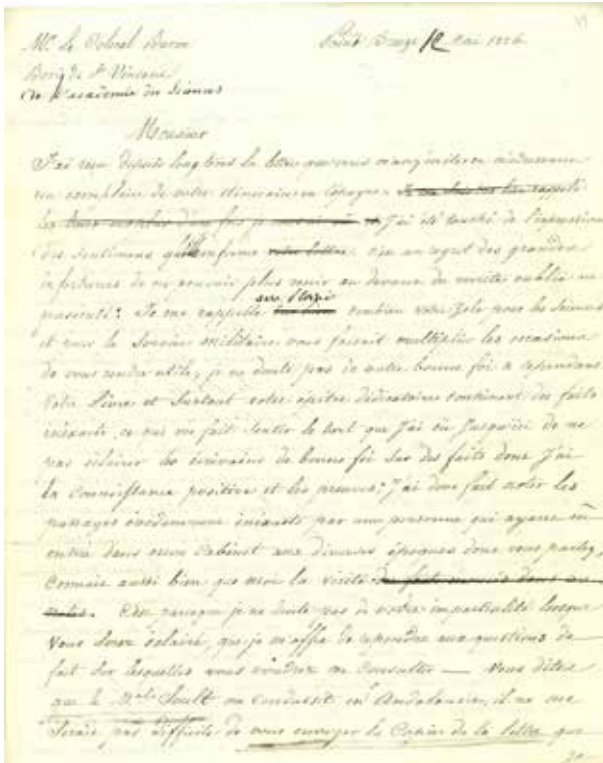 Mr. le Colonel Baron
Bory de St Vincent
de l'académie des Sciences
12 Mai 1826
Monsieur
J'ai reçu depuis longtems la lettre que vous m'avez
un exemplaire de votre itinéraire en Espagne
J'ai été touché de l'expression
des sentimens qu'elle renferme c'est un regret des grandes
infortunes de ne pouvoir plus venir au devant du mérite oublié ou
persécuté: Je me rappelle avec plaisir combien votre zèle pour les Sciences
et pour le Service militaire vous faisait multiplier les occasions
de vous rendre utile, je ne doute pas de votre bonne foi & cependant
votre livre et surtout votre épitre dédicatoire contiennent des faits
inéxacts, ce qui me fait sentir le tort que J'ai eu Jusqu'ici de ne
pas éclairer les écrivains de bonne foi sur des faits dont J'ai
la Connaissance positive et les preuves: J'ai donc fait noter les
passages évidemment inéxacts par une personne qui ayant eu
entrée dans mon Cabinet aux diverses époques dont vous parlez,
Connait aussi bien que moi la vérité
C'est parceque je ne doute pas de votre impartialité lorsque
vous serez éclairé, que je m'offre de répondre aux questions de
fait sur lesquelles vous voudrez me Consulter — Vous dites
que le Mal Soult me conduisit en Andalousie, il ne me
serait pas difficile de vous envoyer les Copies de la lettre que